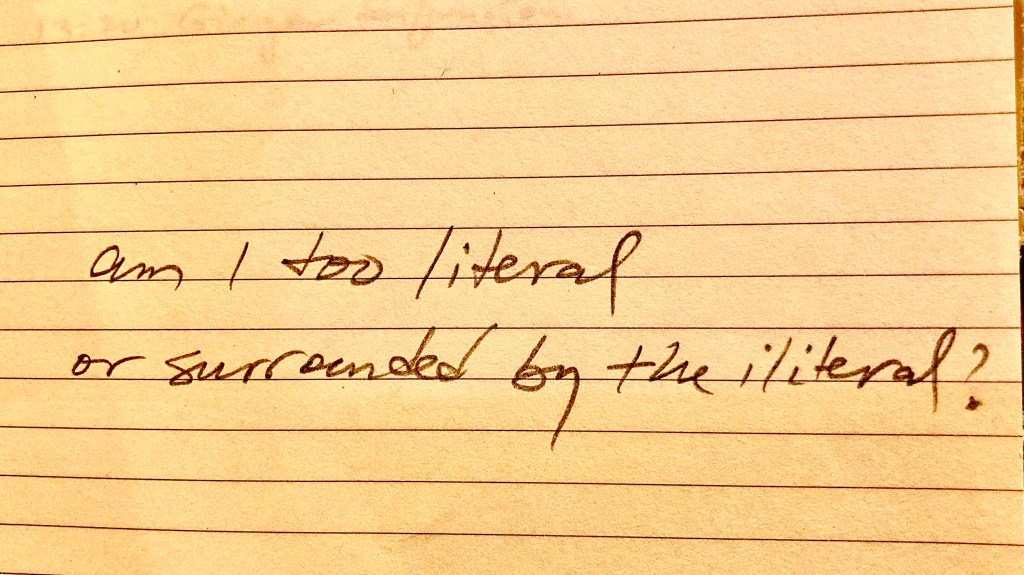 am I too literal
or surrounded by the iliteral?